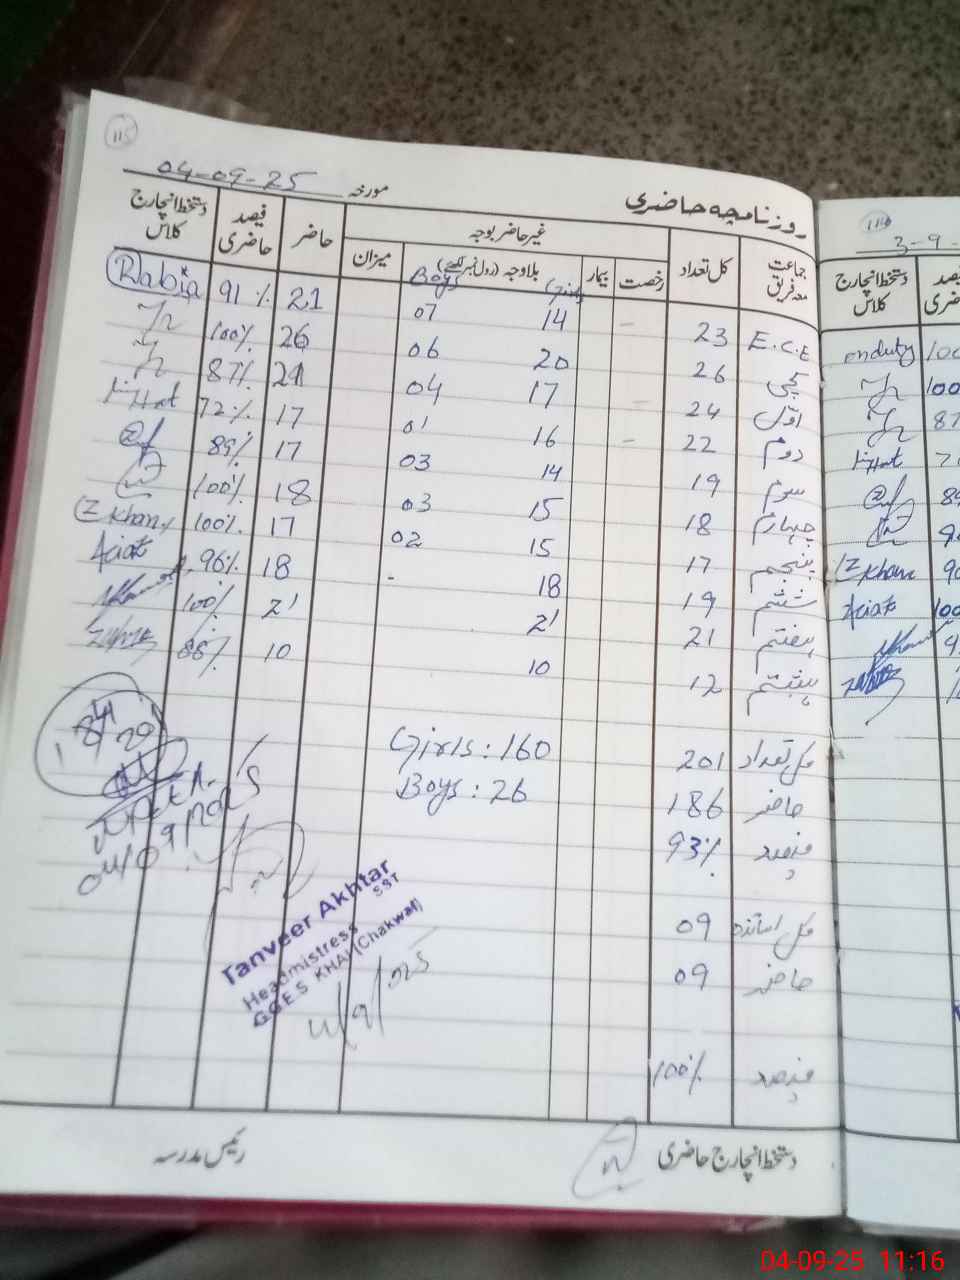 115
مورخہ 04-09-25
روزنامچہ حاضری
جماعت معہ فریق
کل تعداد
غیر حاضر بوجہ
رخصت
بیمار
بلاوجہ (رول نمبر لکھئے)
میزان
حاضر
فیصد حاضری
دستخط انچارج کلاس
Boys Girls
E.C.E 23 – 14 07 21 91% Rabia
کچی 26 20 06 26 100%
اوّل 24 – 17 04 21 87%
دوم 22 – 16 01 17 72%
سوم 19 14 03 17 89%
چہارم 18 15 03 18 100%
پنجم 17 15 02 17 100% IZ Khan
ششم 19 18 - 18 96% Aciat
ہفتم 21 21 21 100%
ہشتم 12 10 10 88%
کل تعداد 201 Girls: 160
حاضر 186 Boys: 26
فیصد 93%
کل اساتذہ 09
حاضر 09
فیصد 100%
Tanveer Akhtar
SST
Headmistress
G.G.E.S KHAI (Chakwal)
4/9/025
دستخط انچارج حاضری
رئیس مدرسہ
116
3-9-
دستخط انچارج کلاس
onduty 100
100
87
IZ Khan 90
Aciat 100
04-09-25 11:16